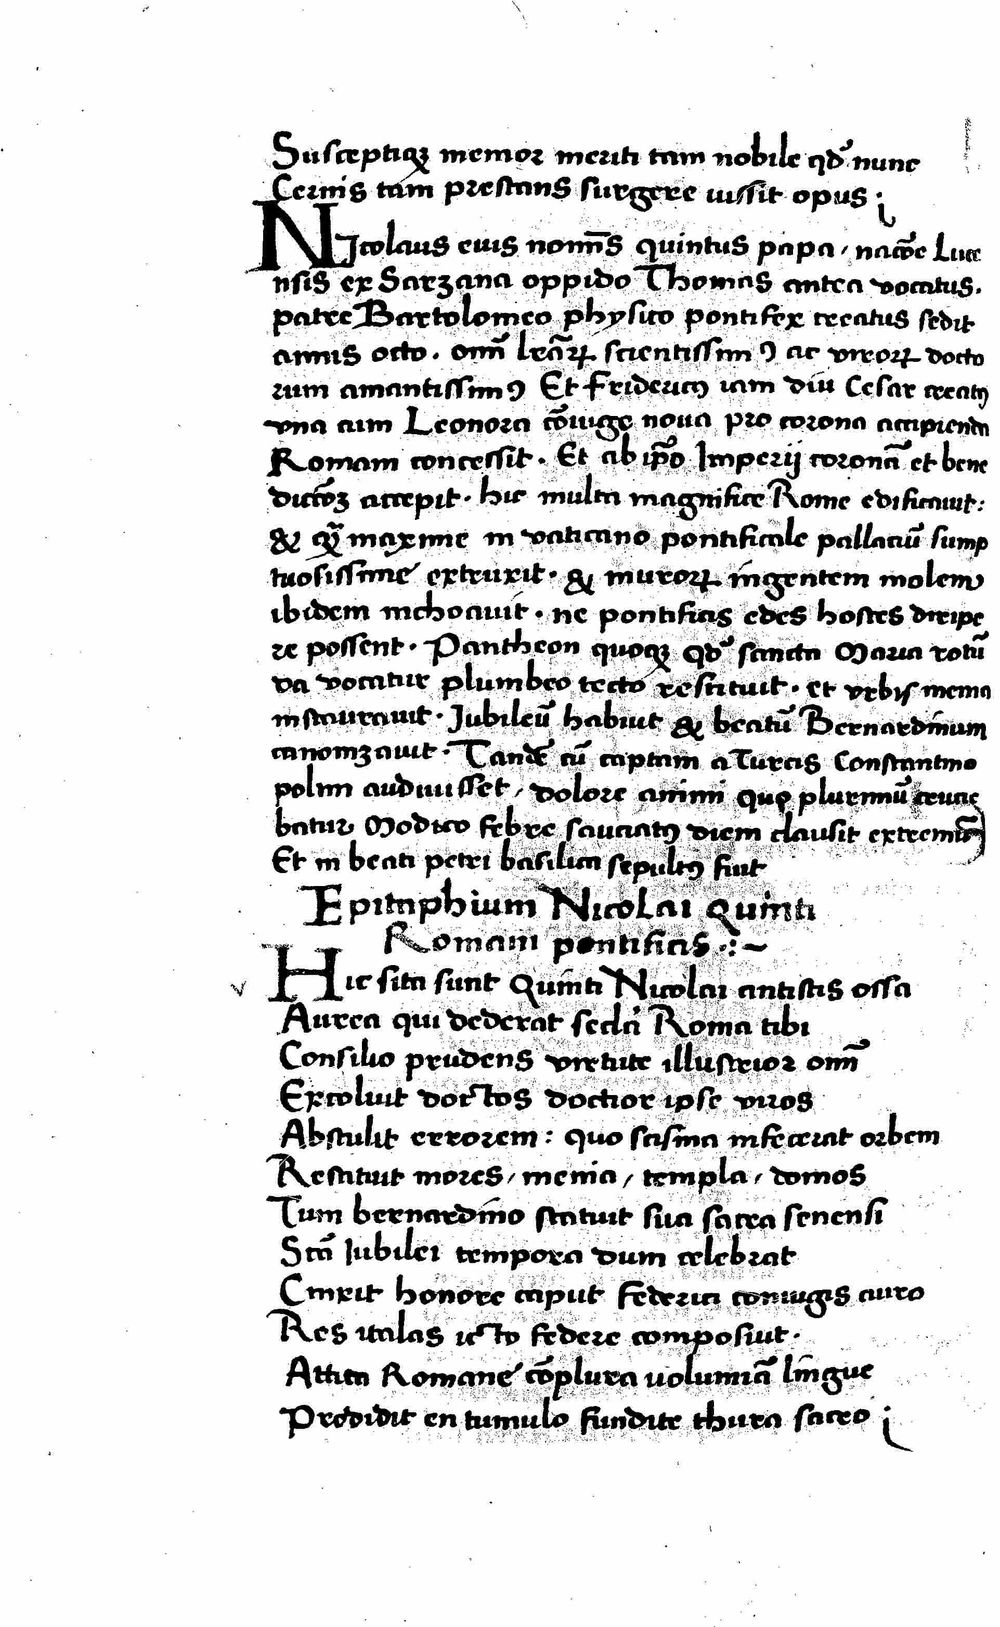 Susceptiqꝫ memor meriti tam nobile qđ nunc
Cernis tam prestans surgere iussit opus ;
Nicolaus eius nomīs quintus papa / natōe Luce
nsis ex Sarzana oppido Thomas antea vocatus.
patre Bartolomeo physico pontifex creatus sedit
annis octo. omī lrāꝝ scientissimꝯ ac virorꝝ docto
rum amantissimꝯ Et Fridericꝯ iam diu Cesar creatꝯ
vna cum Leonora cōiuge noua pro corona accipienda
Romam concessit. Et ab ip̄o Imperij coronā et bene
dictōꝫ accepit. hic multa magnifice Rome edificauit:
& qꝫ maxime in vaticano pontificale pallatiū sump
tuosissime extruxit. & murorꝝ ingentem molem
ibidem inchoauit. ne pontificis edes hostes diripe
re possent. Pantheon quoqꝫ qđ sancta Maria rotū
da vocatur plumbeo tecto restituit. et vrbis menia
instaurauit. Jubileū habuit & beatū Bernardinum
canonizauit. Tandē cū captam a Turcis Constantino
polim audiuisset / dolore animi quo plurimū crucie
batur Modico febre sauciatꝯ diem clausit extremū
Et in beati petri basilica sepultꝯ fuit
Epitaphium Nicolai Quinti
Romani pontificis .:~
Hic sita sunt Quinti Nicolai antistis ossa
Aurea qui dederat secla Roma tibi
Consilio prudens virtute illustrior omī
Excoluit doctos doctior ipse viros
Abstulit errorem: quo scisma infecerat orbem
Restituit mores / menia / templa / domos
Tum bernardino statuit sua sacra senensi
Stā Jubilei tempora dum celebrat
Cinxit honore caput Federici coniugis auro
Res italas icto federe composuit.
Attica Romane cōplura volumiā lingue
Prodidit en tumulo fundite thura sacro ;